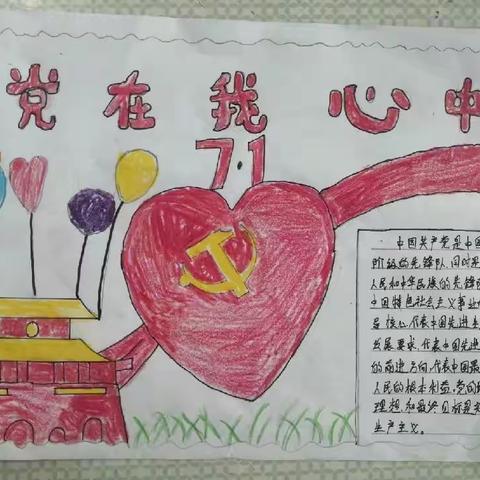 党在我心中
7.1
中国共产党是中国
阶级的先锋队,同时是
人民和中华民族的先锋队
中国特色社会主义事业
导核心,代表中国先进生
发展要求,代表中国先进
的前进方向,代表中国最
人民的根本利益。党的
理想和最终目标是实
生产主义。